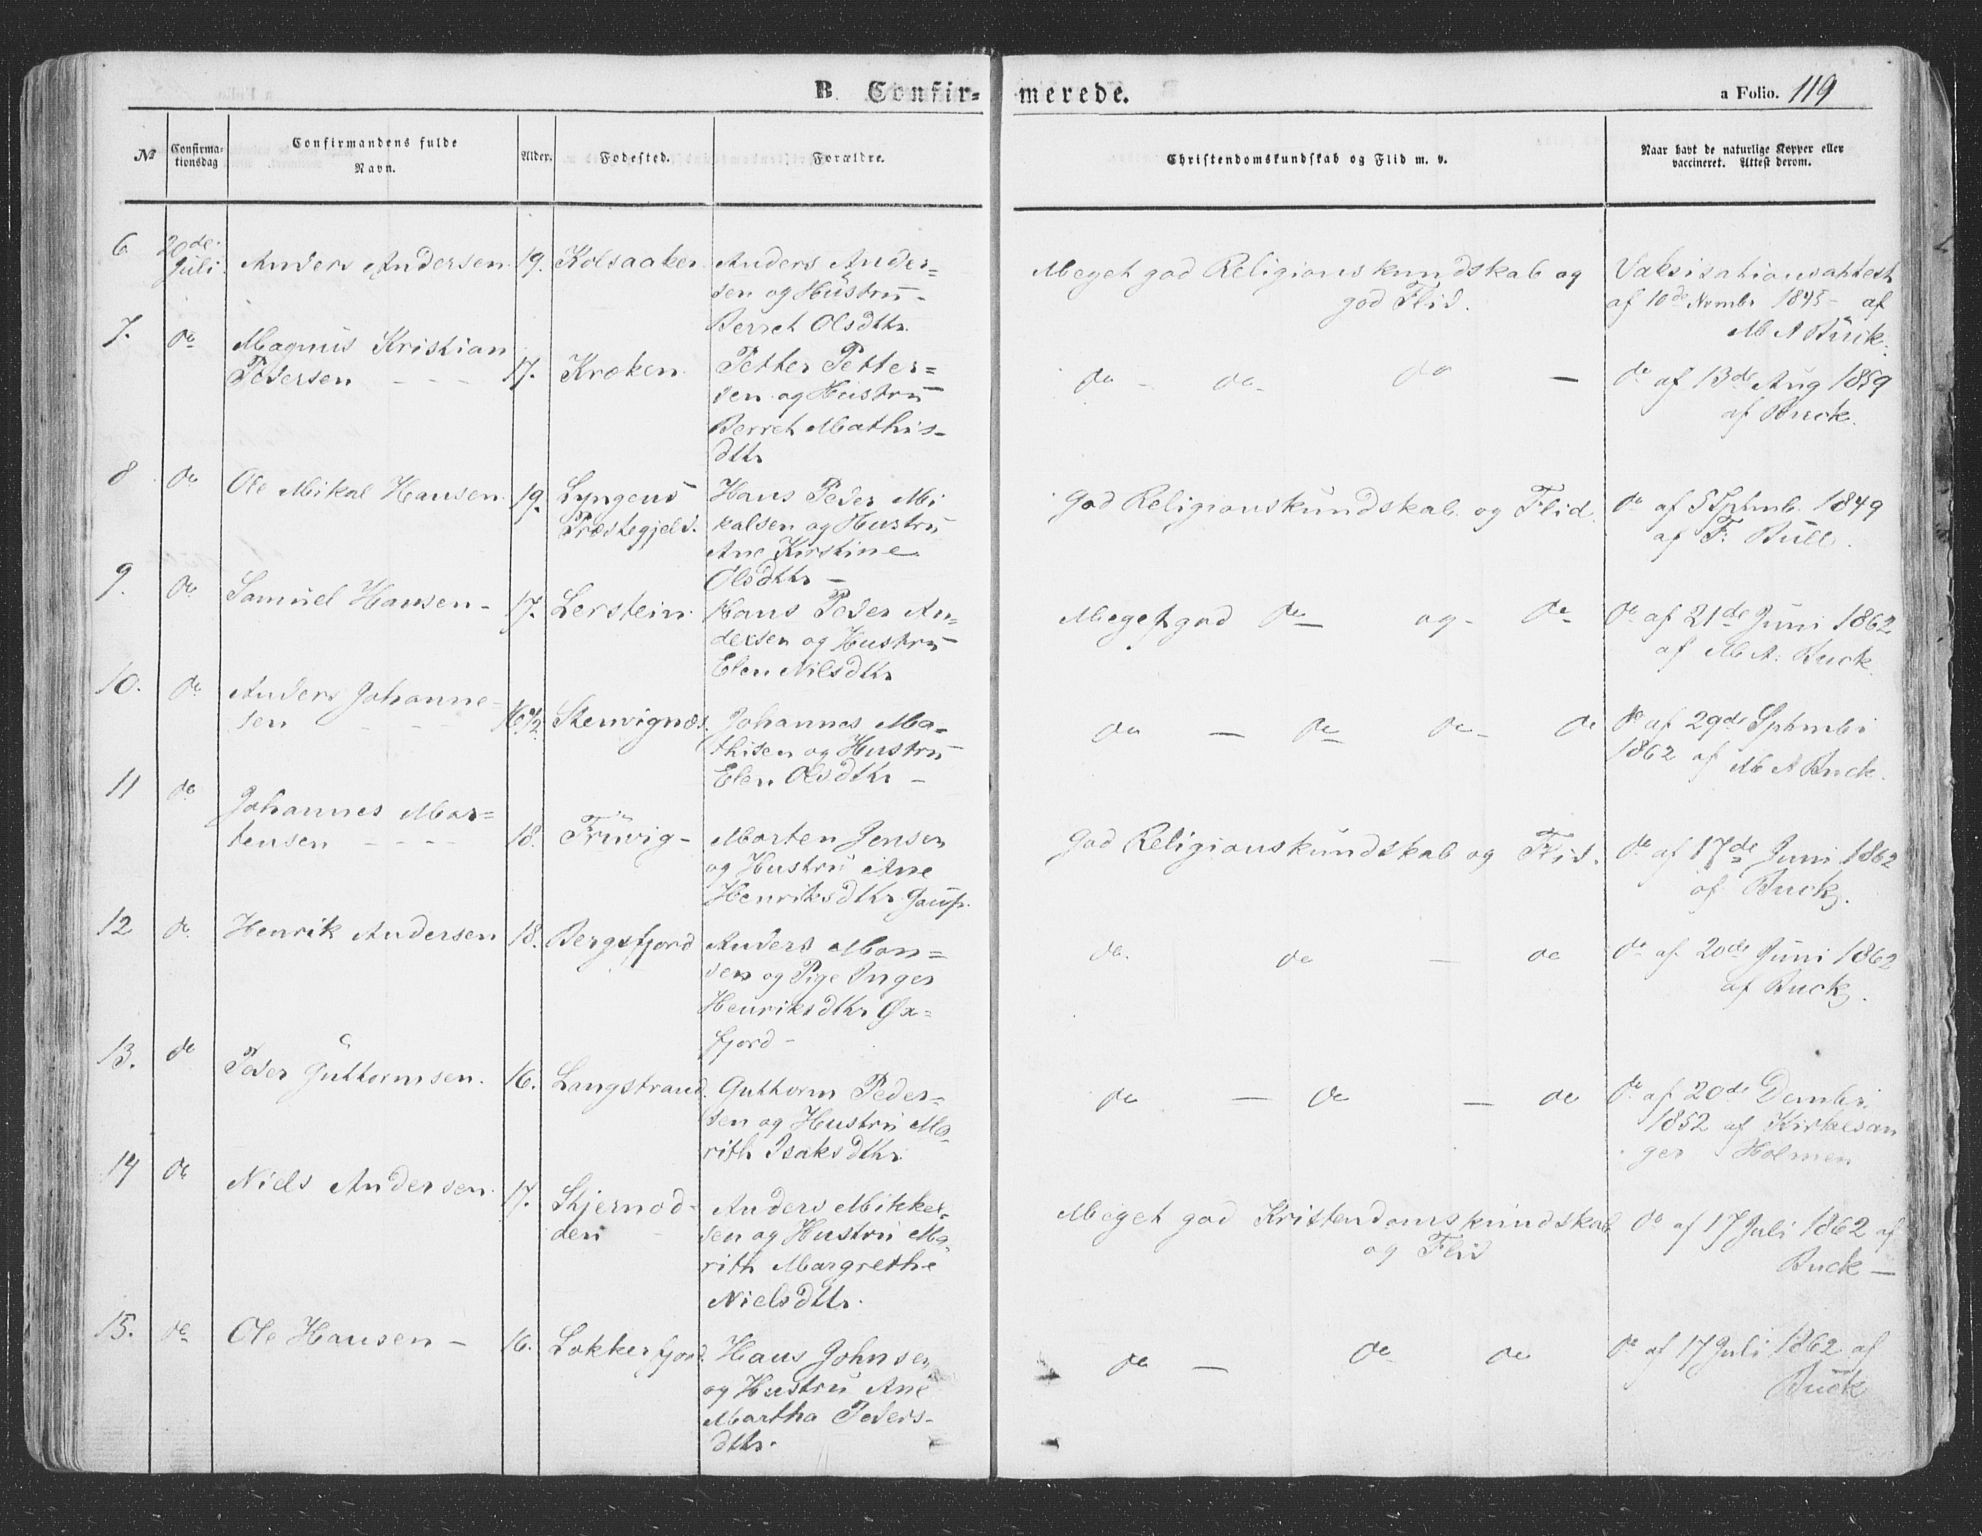 B. Confir-merede.
a Folio. 119
№ Confirma-tionsdag Confirmandens fulde Navn. Alder. Fødested. Forældre. Christendomskundskab og Flid m. v. Naar havt de naturlige Kopper eller vaccineret. Attest derom.
6 20de Juli Anders Andersen 19. Kolsaaker Anders Ander=
sen og Hustru
Berret Olsdtr.
Meget god Religionskundskab og
god Flid.
af 10de Novmbr 1845 af
M A Buck.
7. do Magnus Kristian
Pedersen - - - 17. Kroken Petter Petter=
sen og Hustru
Berret Mathis-
dtr
do - do - do - do af 13de Aug 1859
af Buck.
8 do Ole Mikal Hansen 19. Lyngens
Præstegjeld. Hans Peder Mi
kalsen og Hustru
Ane Kirstine
Olsdtr -
God Religionskundskab og Flid. do af 5 Sptmb. 1849
af F. Bull.
9. do Samuel Hansen - 17. Lerstein Hans Peder An-
dersen og Hustru
Elen Nilsdtr
Meget god do og do do af 21de Juni 1862
af M A. Buck
10. do Anders Johanne-
sen - - 16 1/2 Stenvignæs. Johannes Ma-
thisen og Hustru
Elen Olsdtr -
do - do do - do do af 29de Sptmbr
1862 af M A Buck.
11 do Johannes Mor=
tensen - - - - 18. Fruvig - Morten Jensen
og Hustru Ane
Henriksdtr Gaup.
God Religionskundskab og Flid. do af 17de Juni 1862
af Buck.
12 do Henrik Andersen 18. Bergsfjord Anders Mon=
sen og Pige Inger
Henriksdtr Øx=
fjord -
do. do - do do af. 20de Juni 1862
af Buck.
13. do Peder Guttormsen. 16. Langstrand. Guttorm Peder-
sen og Hustru Ma-
rith Isaksdtr.
do - do - do do af 20de Dcmbr.
1852 af Kirkesan
ger Holmen
14 do Niels Andersen. 17. Skjernod-
den Anders Mikkel-
sen og Hustru Ma-
rith Margrethe
Nielsdtr.
Meget god Kristendomskundskab
og Flid
do af 17 Juli 1862 af
Buck -
15. do Ole Hansen - 16. Lokkerfjord. Hans Johnsen
og Hustru Ane
Martha Peders-
dtr.
do - do do do af 17 Juli 1862 af
Buck